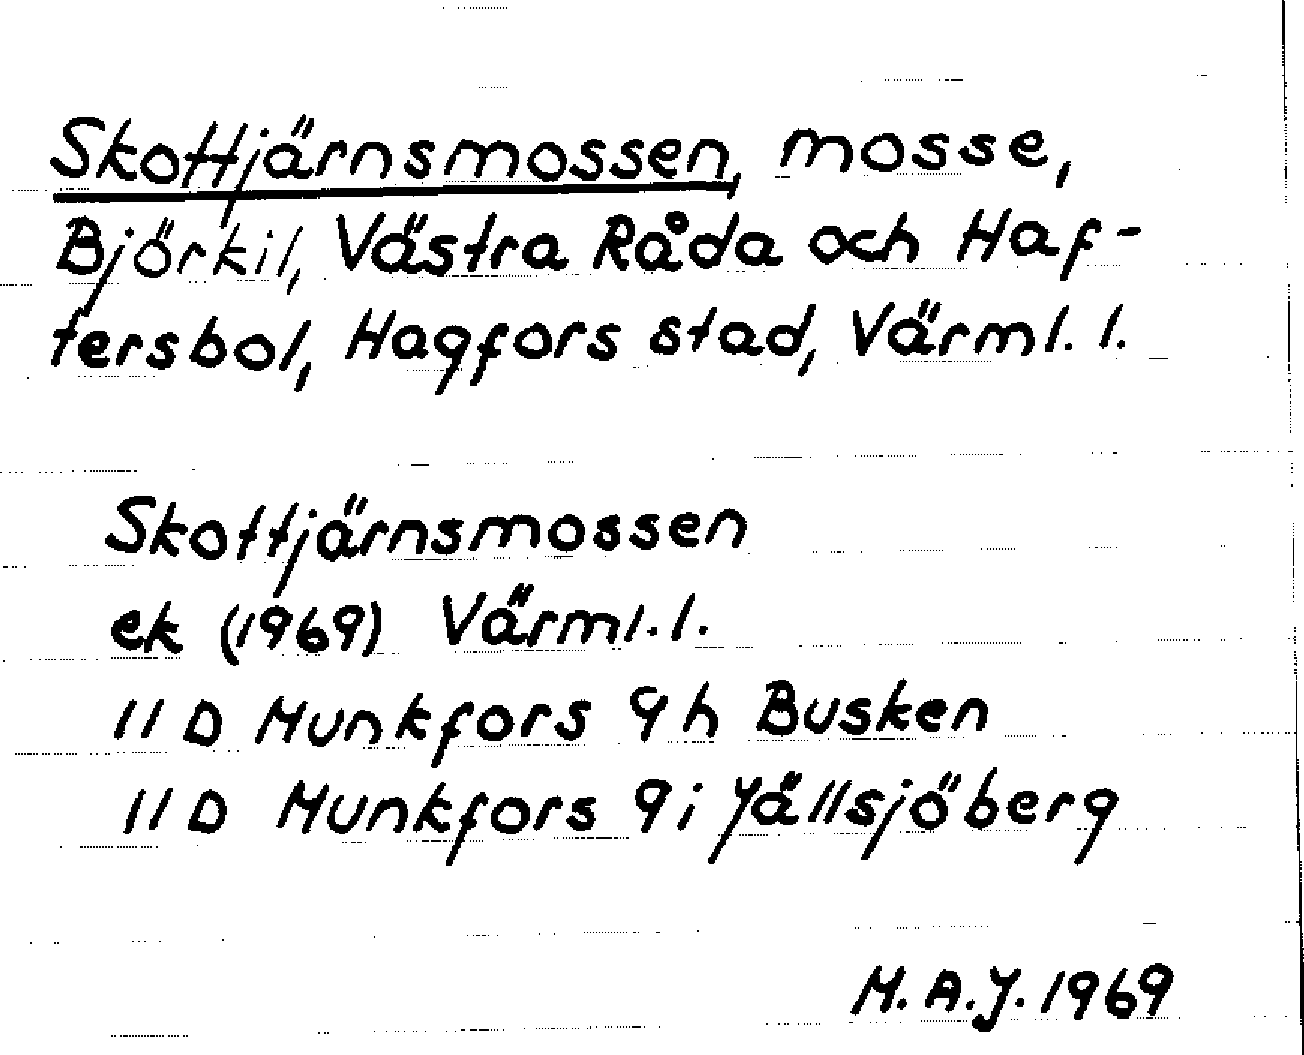 Skottjärnsmossen, mosse,
Björkil, Västra Råda och Haf-
tersbol, Hagfors stad, Värml. l.
Skottjärnsmossen
ek (1969) Värml. l.
11 D Munkfors 9 h Busken
11 D Munkfors 9 i Yällsjöberg
M. A. J. 1969